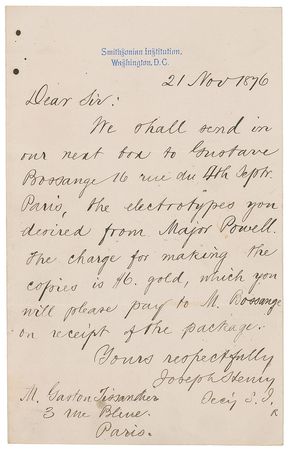 Smithsonian Institution.
Washington, D.C.
21 Nov 1876
Dear Sir:
We shall send in
our next box to Gustave
Bossange 16 rue du 4th Septr.
Paris, the electrotypes you
desired from Major Powell.
The charge for making the
copies is gold, which you
will please pay to M. Bossange
on receipt of the package.
Yours respectfully
Joseph Henry
Secy S. I.
M. Gaston Tissandier
3 rue Bleue.
Paris.